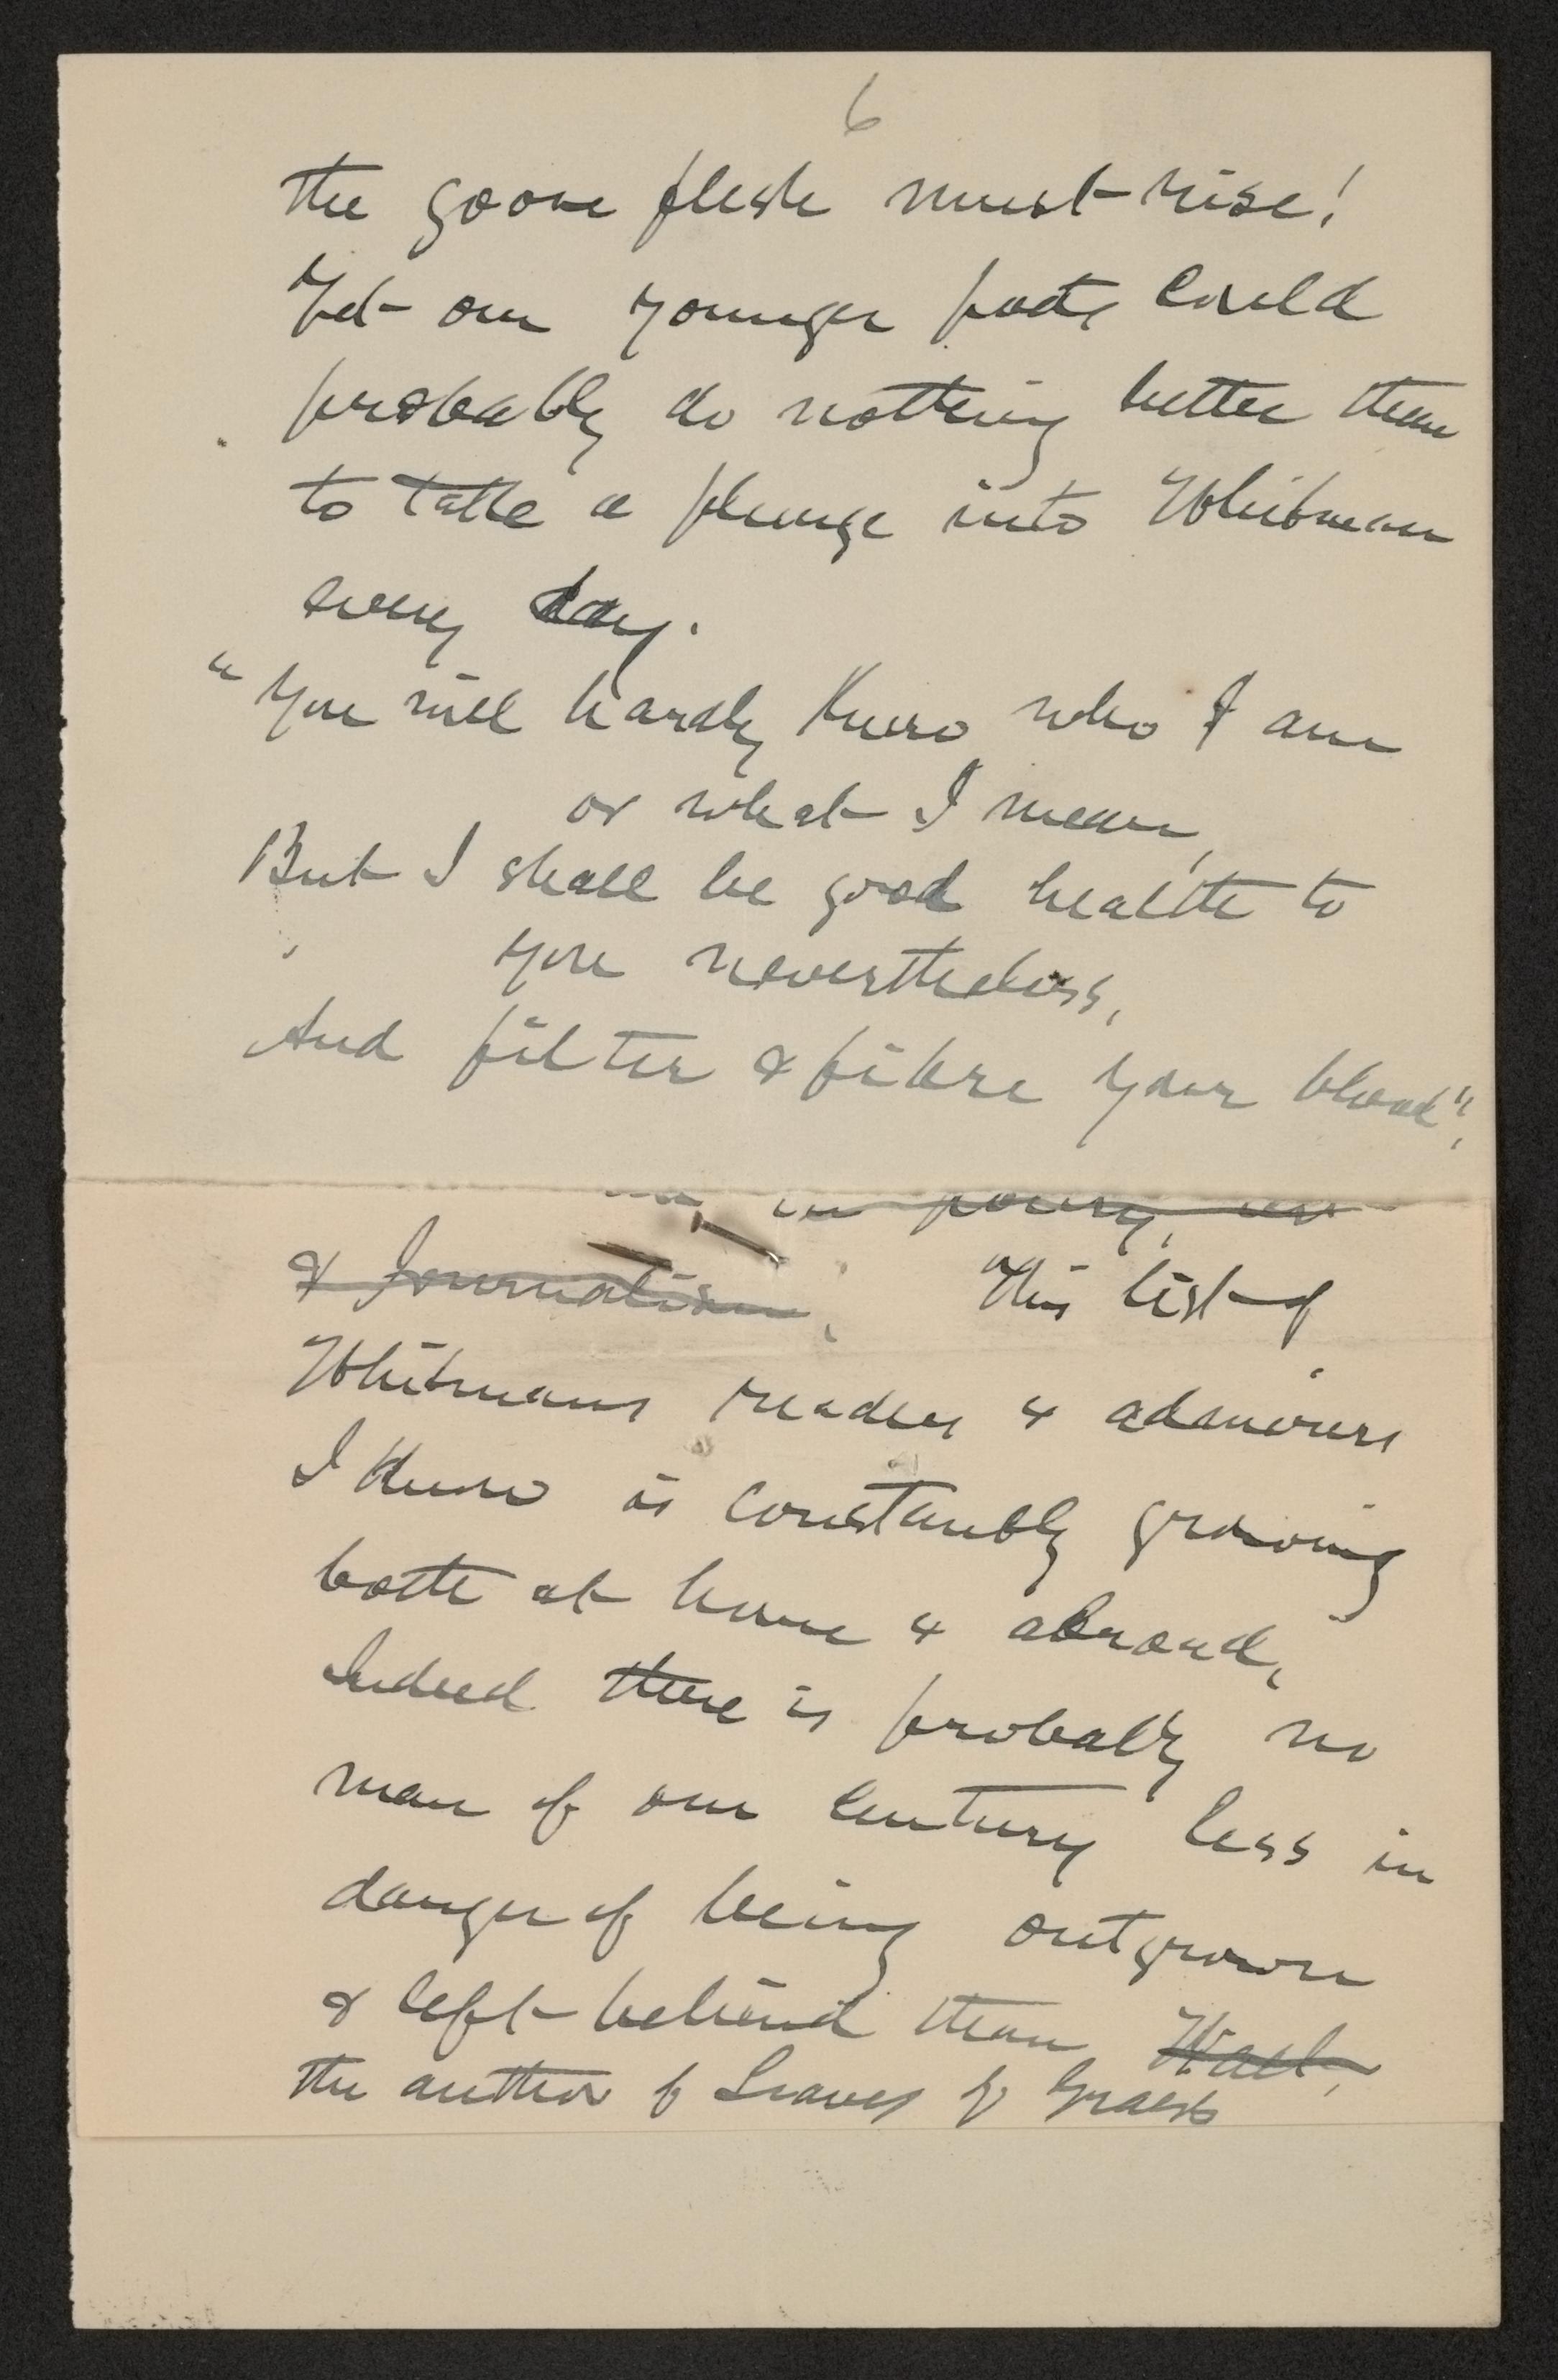 6
the goose flesh must rise!
Yet our younger poets could
probably do nothing better than
to take a plunge into Whitman
every day.
"You will hardly know who I am
or what I mean,
But I shall be good health to
you nevertheless,
And filter & fibre your blood",
in poetry,
& Journalism. This list of
Whitmans readers & admirers
I know is constantly growing
both at home & abroad,
Indeed there is probably no
man of our century less in
danger of being outgrown
& left behind than Walt,
the author of Leaves of Grass